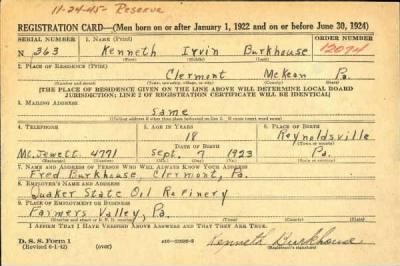 11-24-45- Reserve
REGISTRATION CARD—(Men born on or after January 1, 1922 and on or before June 30, 1924)
SERIAL NUMBER 1. NAME (Print) ORDER NUMBER
N 363 Kenneth Irvin Burkhouse 12074
(First) (Middle) (Last)
2. PLACE OF RESIDENCE (Print)
Clermont McKean Pa.
(Number and street) (Town, township, village, or city) (County) (State)
[THE PLACE OF RESIDENCE GIVEN ON THE LINE ABOVE WILL DETERMINE LOCAL BOARD
JURISDICTION; LINE 2 OF REGISTRATION CERTIFICATE WILL BE IDENTICAL]
3. MAILING ADDRESS
Same
[Mailing address if other than place indicated on line 2. If same insert word same]
4. TELEPHONE 5. AGE IN YEARS 6. PLACE OF BIRTH
18 Reynoldsville
DATE OF BIRTH (Town or county)
Mt. Jewett 4771 Sept. 7 1923 Pa.
(Exchange) (Number) (Mo.) (Day) (Yr.) (State or country)
7. NAME AND ADDRESS OF PERSON WHO WILL ALWAYS KNOW YOUR ADDRESS
Fred Burkhouse, Clermont, Pa.
8. EMPLOYER'S NAME AND ADDRESS
Quaker State Oil Refinery
9. PLACE OF EMPLOYMENT OR BUSINESS
Farmers Valley, Pa.
(Number and street or R. F. D. number) (Town) (County) (State)
I AFFIRM THAT I HAVE VERIFIED ABOVE ANSWERS AND THAT THEY ARE TRUE.
D. S. S. Form 1
(Revised 6-1-42) (over) Kenneth Burkhouse
(Registrant's signature)